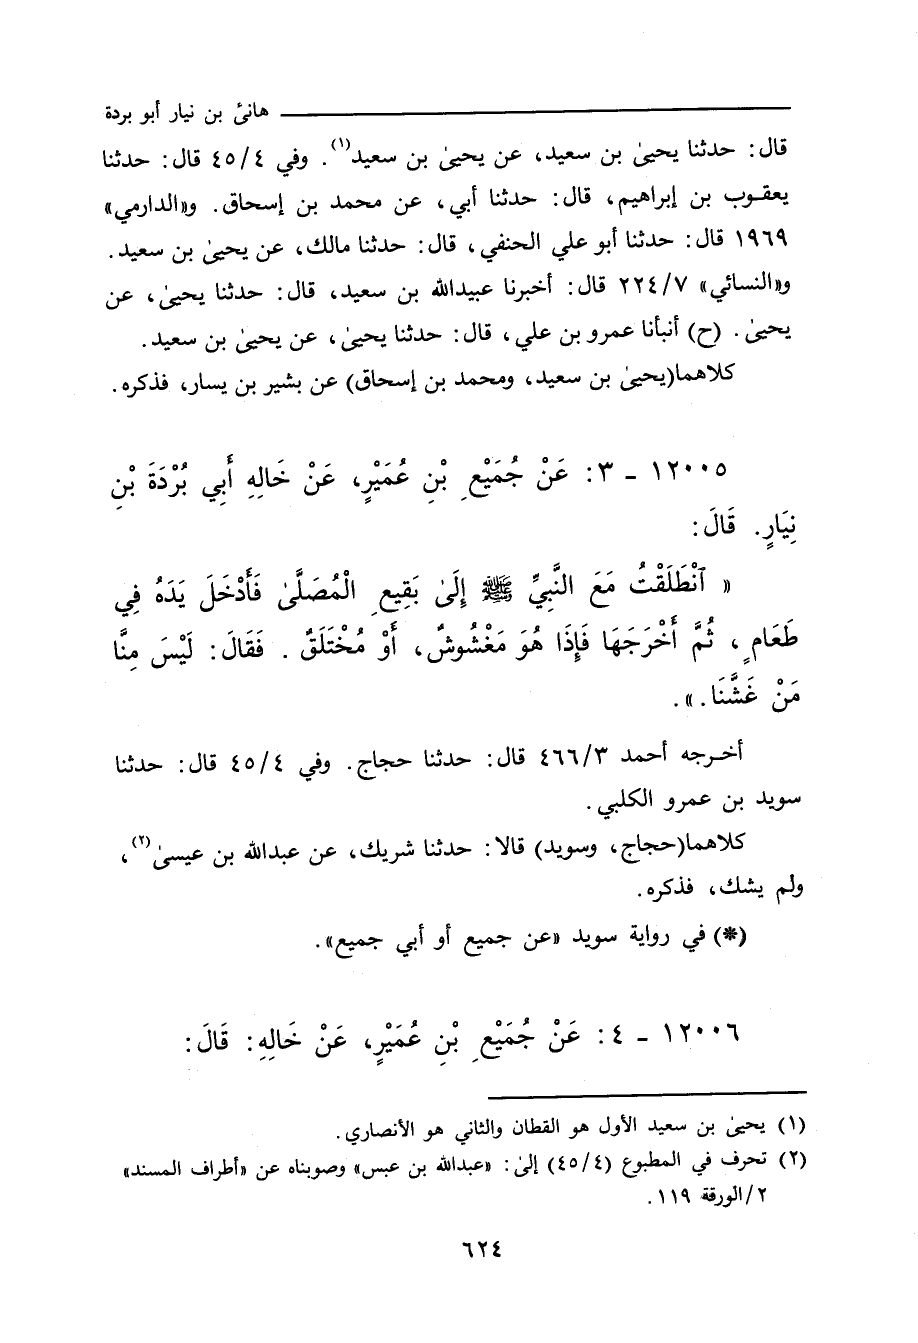 هانئ بن نيار أبو بردة
قال: حدثنا يحيىٰ بن سعيد، عن يحيىٰ بن سعيد(١). وفي ٤٥/٤ قال: حدثنا
يعقـوب بن إبراهيم، قال: حدثنا أبي، عن محمد بن إسحاق. و«الدارمي»
١٩٦٩ قال: حدثنا أبو علي الحنفي، قال: حدثنا مالك، عن يحيىٰ بن سعيد.
و«النسائي» ٢٢٤/٧ قال: أخبرنا عبيدالله بن سعيد، قال: حدثنا يحيىٰ، عن
يحيىٰ. (ح) أنبأنا عمرو بن علي، قال: حدثنا يحيىٰ، عن يحيىٰ بن سعيد.
كلاهما(يحيىٰ بن سعيد، ومحمد بن إسحاق) عن بشير بن يسار، فذكره.
١٢٠٠٥ - ٣: عَنْ جُمَيْعِ بْنِ عُمَيْرٍ، عَنْ خَالِهِ أَبِي بُرْدَةَ بْنِ
نِيَارٍ. قَالَ:
« ٱنْطَلَقْتُ مَعَ النَّبِيِّ ﷺ إِلَىٰ بَقِيعِ الْمُصَلَّىٰ فَأَدْخَلَ يَدَهُ فِي
طَعَامٍ، ثُمَّ أَخْرَجَهَا فَإِذَا هُوَ مَغْشُوشٌ، أَوْ مُخْتَلَقٌ. فَقَالَ: لَيْسَ مِنَّا
مَنْ غَشَّنَا.».
أخـرجه أحمد ٤٦٦/٣ قال: حدثنا حجاج. وفي ٤٥/٤ قال: حدثنا
سويد بن عمرو الكلبي.
كلاهما(حجاج، وسويد) قالا: حدثنا شريك، عن عبدالله بن عيسىٰ(٢)،
ولم يشك، فذكره.
(*) في رواية سويد «عن جميع أو أبي جميع».
١٢٠٠٦ - ٤: عَنْ جُمَيْعِ بْنِ عُمَيْرٍ، عَنْ خَالِهِ: قَالَ:
(١) يحيىٰ بن سعيد الأول هو القطان والثاني هو الأنصاري.
(٢) تحرف في المطبوع (٤٥/٤) إلىٰ: «عبدالله بن عبس» وصوبناه عن «أطراف المسند»
٢/الورقة ١١٩.
٦٢٤